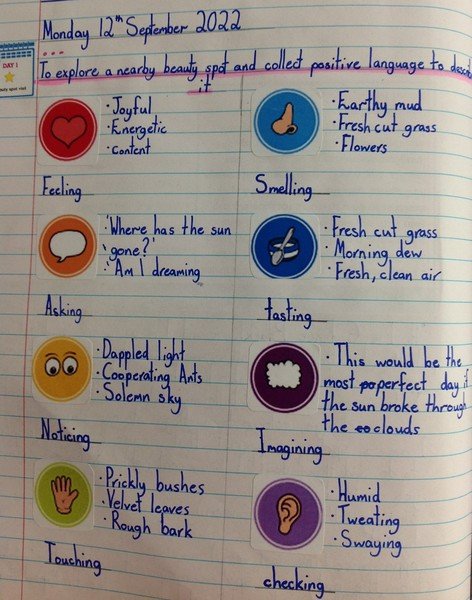 Monday 12th September 2022
DAY 1
To explore a nearby beauty spot and collect positive language to
it
· Joyful
· Energetic
· content
Feeling
· Earthy mud
· Fresh cut grass
· Flowers
Smelling
· 'Where has the sun
'gone?'
· 'Am I dreaming
Asking
· Fresh cut grass
· Morning dew
· Fresh, clean air
tasting
· Dappled light
· Cooperating Ants
· Solemn sky
Noticing
· This would be the
most perfect day if
the sun broke through
the clouds
Imagining
· Prickly bushes
· Velvet leaves
· Rough bark
Touching
· Humid
· Tweating
· Swaying
checking